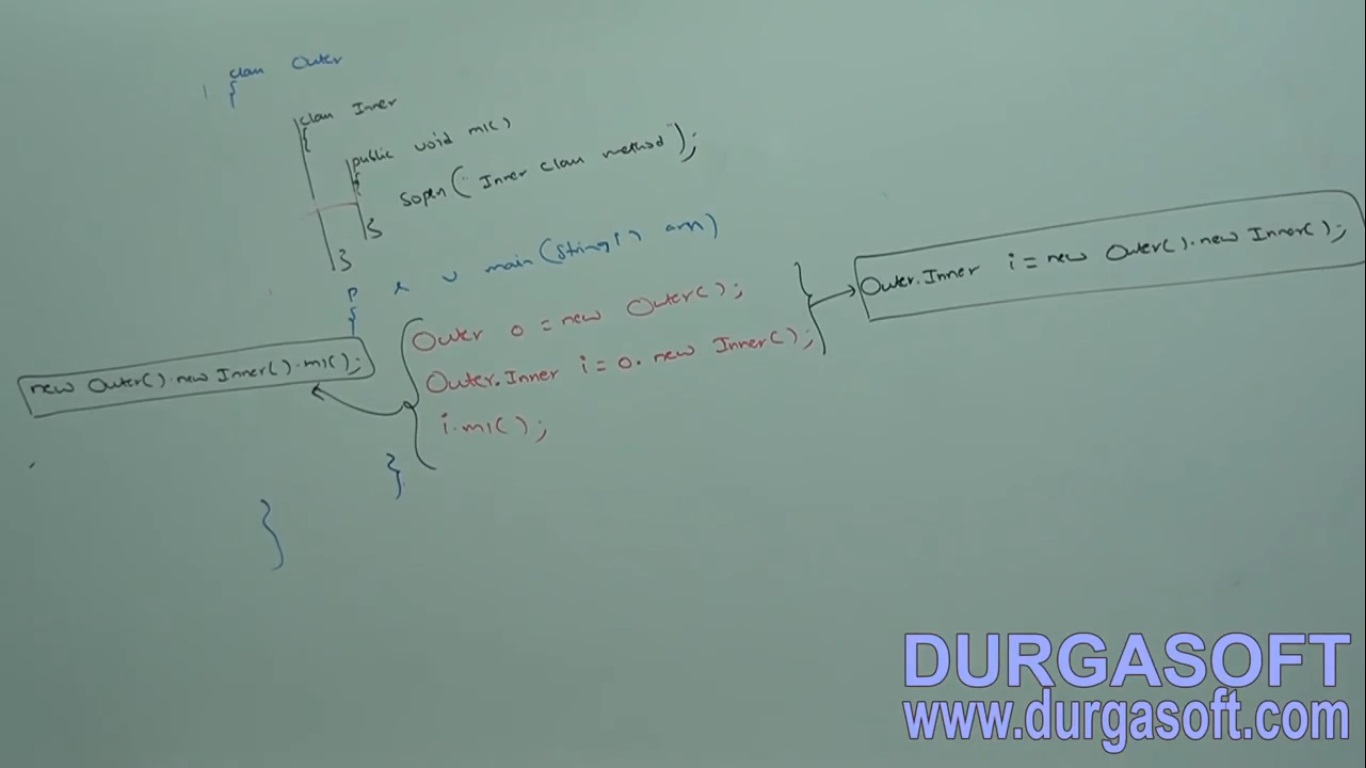 class Outer
{
class Inner
{
public void m1()
{
sopln("Inner class method");
}
}
p s v main(String[] args)
{
Outer o = new Outer();
Outer.Inner i = o.new Inner();
i.m1();
}
}
Outer.Inner i = new Outer().new Inner();
new Outer().new Inner().m1();
DURGASOFT
www.durgasoft.com